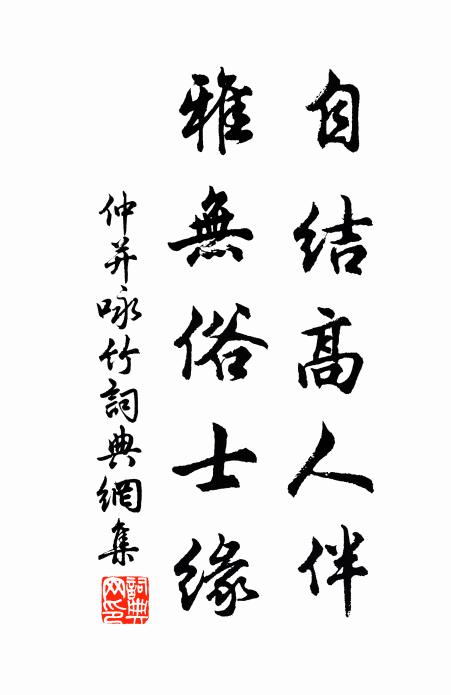 自结高人伴
雅無俗士缘
仲并咏竹詞典網集
詞典網印